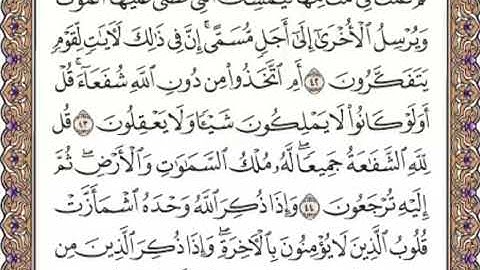 وَيُرْسِلُ ٱلْأُخْرَىٰٓ إِلَىٰٓ أَجَلٍ مُّسَمًّى ۚ إِنَّ فِى ذَٰلِكَ لَءَايَٰتٍ لِّقَوْمٍ
يَتَفَكَّرُونَ ۝٤٢ أَمِ ٱتَّخَذُوا۟ مِن دُونِ ٱللَّهِ شُفَعَآءَ ۚ قُلْ
أَوَلَوْ كَانُوا۟ لَا يَمْلِكُونَ شَيْـًٔا وَلَا يَعْقِلُونَ ۝٤٣ قُل
لِّلَّهِ ٱلشَّفَٰعَةُ جَمِيعًا ۖ لَّهُۥ مُلْكُ ٱلسَّمَٰوَٰتِ وَٱلْأَرْضِ ۖ ثُمَّ
إِلَيْهِ تُرْجَعُونَ ۝٤٤ وَإِذَا ذُكِرَ ٱللَّهُ وَحْدَهُ ٱشْمَأَزَّتْ
قُلُوبُ ٱلَّذِينَ لَا يُؤْمِنُونَ بِٱلْءَاخِرَةِ ۖ وَإِذَا ذُكِرَ ٱلَّذِينَ مِن